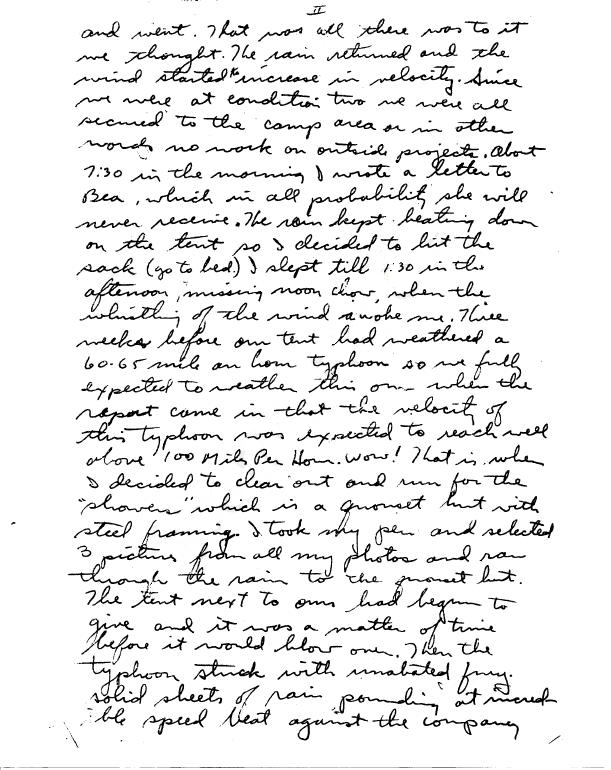 II
and went. That was all there was to it
we thought. The rain returned and the
wind started to increase in velocity. Since
we were at condition two we were all
secured to the camp area or in other
words no work on outside projects. About
7:30 in the morning I wrote a letter to
Bea, which in all probability she will
never receive. The rain kept beating down
on the tent so I decided to hit the
sack (go to bed.) I slept till 1:30 in the
afternoon, missing noon chow, when the
whistling of the wind awoke me. Three
weeks before our tent had weathered a
60-65 mile an hour typhoon so we fully
expected to weather this one when the
report came in that the velocity of
this typhoon was expected to reach well
above 100 Miles Per Hour. Wow! That is when
I decided to clear out and run for the
"showers" which is a quonset hut with
steel framing. I took my pen and selected
3 pictures from all my photos and ran
through the rain to the quonset hut.
The tent next to ours had begun to
give and it was a matter of time
before it would blow over. Then the
typhoon struck with unabated fury.
solid sheets of rain pounding at incred-
ible speed beat against the company